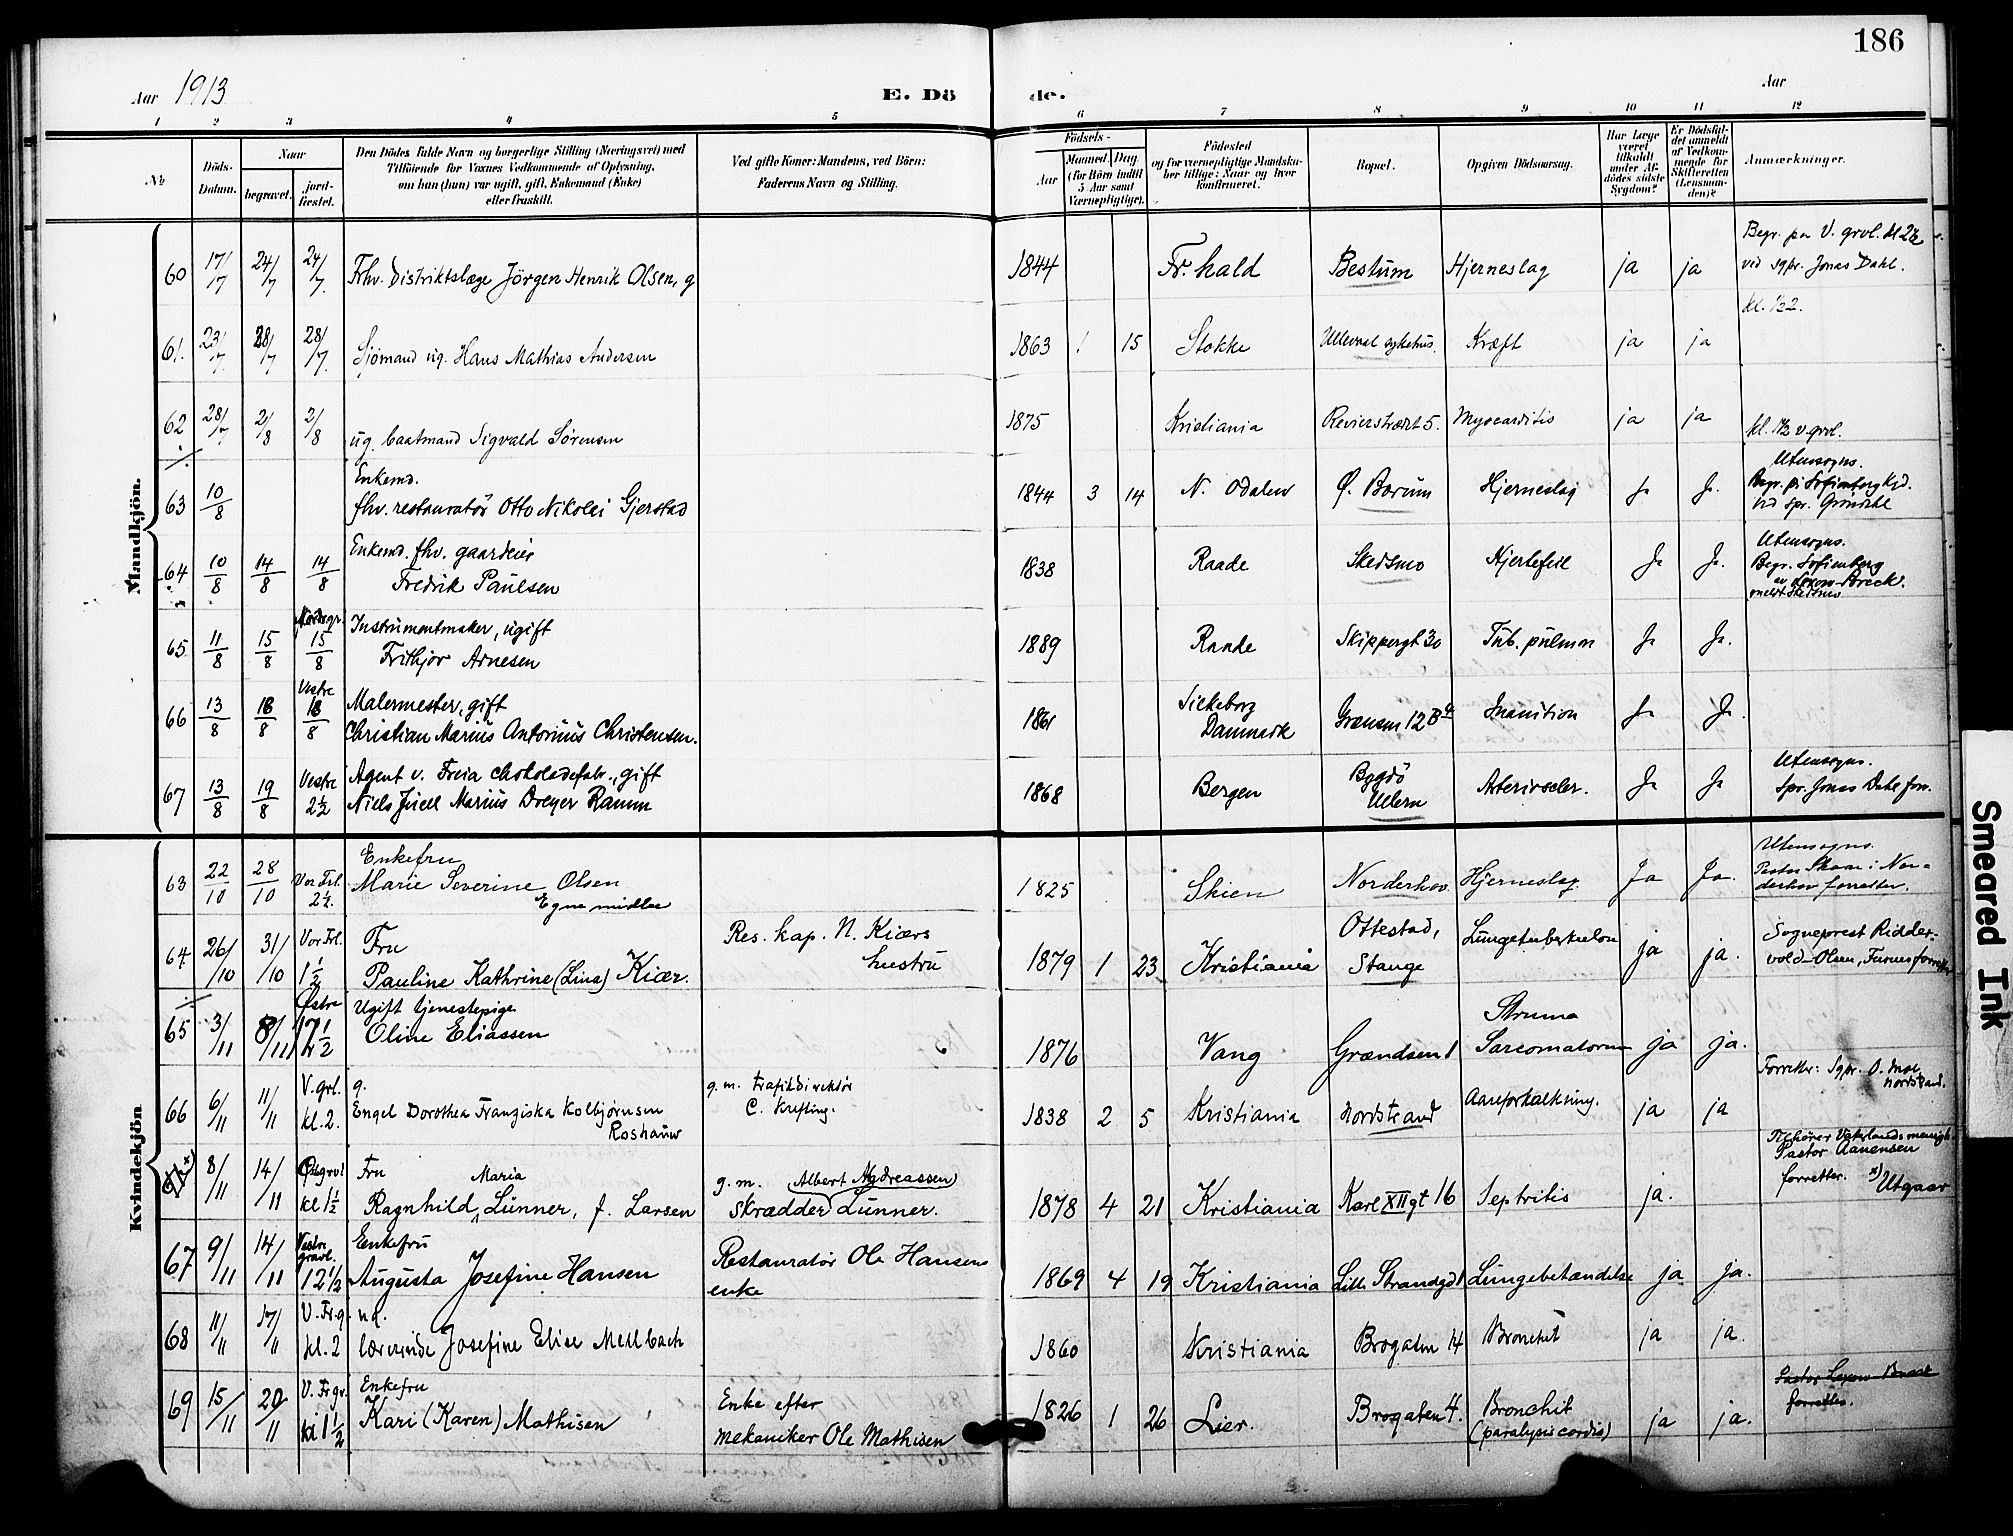 186
Aar 1913
E. Döde.
Aar
1 2 3 4 5 6 7 8 9 10 11 12
No
Döds-Datum.
Naar
begravet.
jord-fæstet.
Den Dödes fulde Navn og borgerlige Stilling (Næringsvei) med
Tilföiende for Voxnes Vedkommende af Oplysning,
om han (hun) var ugift, gift, Enkemand (Enke)
eller fraskilt.
Ved gifte Koner: Mandens, ved Börn:
Faderens Navn og Stilling.
Födsels-
Aar
Maaned. Dag.
(for Börn indtil
5 Aar samt
Værnepligtige).
Födested
og for værnepligtige Mandska-
ber tillige: Naar og hvor
konfirmeret.
Bopæl.
Opgiven Dödsaarsag.
Har Læge
været
tilkaldt
under Af-
dödes sidste
Sygdom?
Er Dödsfal-
det anmeldt
af Vedkom-
mende for
Skifteretten
(Lensman-
den)?
Anmærkninger.
Mandkjön.
60 17/7 24/7 24/7 Frhv. Distriktslæge Jörgen Henrik Olsen, g 1844 Fr.hald Bestum Hjerneslag ja ja
Begr. paa V. grvl. kl 2½
ved sgpr. Jonas Dahl.
61. 23/7. 28/7 28/7. Sjömand ug. Hans Mathias Andersen 1863 1 15 Stokke Ullevaal sykehus. Kræft ja ja
kl. ½2.
62 28/7 2/8 2/8 ug. baatmand Sigvald Sørensen 1875 Kristiania Revierstrædt 5. Myocarditis ja ja
kl. 1½ v. grvl.
63 10/8 Enkemd.
fhv. restauratör Otto Nikolai Gjerstad 1844 3 14 N. Odalen Ø. Bærum Hjerneslag Ja Ja.
Utensogns.
Begr. på Sofienberg Kgd.
ved spr. Gröndahl
64 10/8 14/8 14/8 Enkemd. fhv. gaardeier
Fredrik Paulsen 1838 Raade Skedsmo Hjertefeil Ja Ja.
Utensogns.
Begr. Sofienberg
65 11/8 15/8 15/8 Instrumentmaker, ugift
Frithjov Arnesen 1889 Raade Skippergt 30 Tub. pulmon Ja Ja.
66 13/8 18/8 Vestre 18/8 Malermester, gift
Christian Marius Antonius Christensen. 1861 Silkeborg
Danmark Grænsen 12 B Inanition Ja Ja
67 13/8 19/8 Vestre 2½ Agent v. Freia chokoladefabr., gift
Niels Juell Marius Dreyer Ramm 1868 Bergen Bygdö
Ullern Arterioscler. Ja Ja
Utensogns.
Spr. Jonas Dahl forr.
Kvindekjön
63 22/10 28/10 Vor Frl. 2½. Enkefru
Marie Severine Olsen
Egne midler 1825 Skien Norderhov. Hjerneslag. Ja Ja.
Utensogns.
Pastor Skaar i Nor-
derhov forretter.
64 26/10 31/10 Vor Frl. 1½ Fru
Pauline Kathrine (Lina) Kiær.
Res. kap. N. Kiærs
hustru 1879 1 23 Kristiania Ottestad,
Stange Lungetuberkulose ja ja.
Sogneprest Ridder-
vold-Olsen, Furnes forretter
65 3/11 8/11 Østre Ugift tjenestepige.
Oline Eliassen 1876 Vang Grændsen 1 Struma
Sarcomatorum ja ja.
66 6/11 11/11 V. grl. kl. 2. g.
Engel Dorothea Franziska Kolbjørnsen
Roshauw
g. m. trafikdirektør
C. Krefting. 1838 2 5 Kristiania Nordstrand Aareforkalkning. ja ja
Forretter: Sgpr. O. Moe
Nordstrand.
8/11 14/11 Ø. grvl kl 1½ Fru Maria
Ragnhild Lunner, f. Larsen
g. m. (Albert Andreassen)
Skrædder Lunner. 1878 4 21 Kristiania Karl XII gt 16 Septritis ja.
Tilhører Vaterlands menigh.
Pastor Aanensen
forretter. x) Utgaar
67 9/11 14/11 Vestre gravl. 12½ Enkefru
Augusta Josefine Hansen
Restauratör Ole Hansens
enke 1869 4 19 Kristiania Lill. Strandgd 1 Lungebetændelse ja ja.
68 11/11 17/11 V. Fr. g. kl. 2 ug.
lærerinde Josefine Elise Mellbach 1860 Kristiania Brogaten 14 Bronchit ja ja.
69 15/11 20/11 V. Fr gr. kl 1½ Enkefru
Kari (Karen) Mathisen
Enke efter
mekaniker Ole Mathisen 1826 1 26 Lier. Brogaten 4. Bronchit
(paralysis cordis) ja ja.
forretter.
Smeared Ink